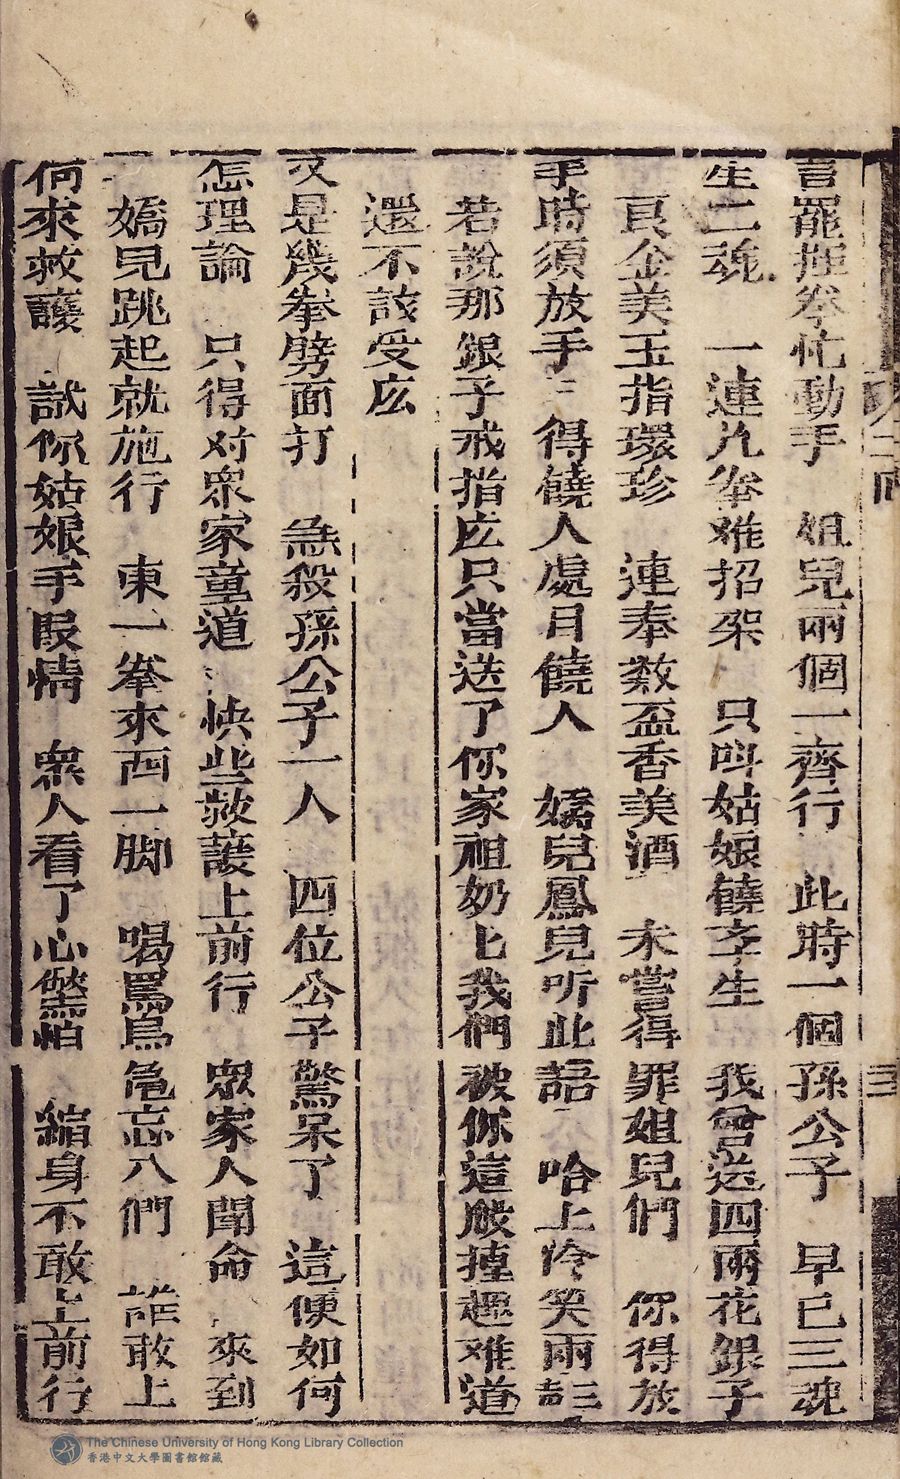 言罷捶拳忙動手　姐兒兩個一齊行　此時一個孫公子　早已三魂
生二魂　一連九拳难招架　只呌姑娘饒孛生　我曾送四兩花銀子
頁金美玉指環珍　連奉数盃香美酒　未嘗得罪姐兒們　你得放
手時須放手　得饒人處且饒人　嬌兒鳳兒听此語　哈上冷笑兩三
若說那銀子戒指庅只當送了你家祖奶匕我們被你這般捶趣难道
還不該受庅
又是幾拳劈面打　急殺孫公子一人　四位公子驚呆了　這便如何
怎理論　只得对衆家童道　快些救護上前行　衆家人聞命　來到
嬌兒跳起就施行　東一拳來西一脚　喝罵烏龟忘八們　誰敢上
何來救護　試你姑娘手叚情　衆人看了心驚怕　縮身不敢上前行
二回
三
The Chinese University of Hong Kong Library Collection
香港中文大學圖書館館藏